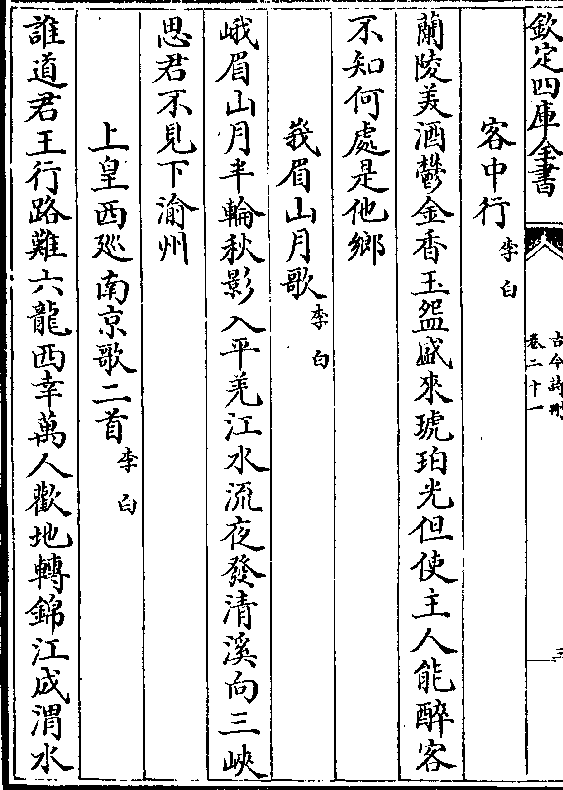 欽定四庫全書
古今詩刪
卷二十一
三
客中行
李白
蘭陵美酒鬱金香玉盌盛來琥珀光但使主人能醉客
不知何處是他鄉
峩眉山月歌
李白
峨眉山月半輪秋影入平羌江水流夜發清溪向三峽
思君不見下渝州
上皇西廵南京歌二首
李白
誰道君王行路難六龍西幸萬人歡地轉錦江成渭水